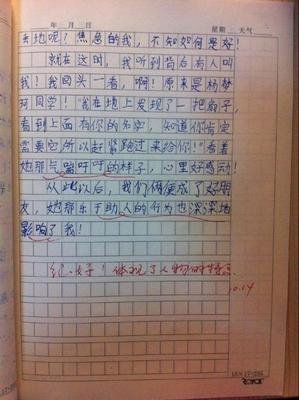 年 月 日 星期 天气
去地呢？焦急的我，不知如何是好！
就在这时，我听到背后有人叫
我！我回头一看，啊！原来是杨梦
珂同学！“我在地上发现了一把扇子，
看到上面有你的名字，知道你肯定
需要它所以赶紧跑过来给你！”看着
她那气喘吁吁的样子，心里好感动！
从此以后，我们俩便成了好朋
友，她那乐于助人的行为也深深地
影响了我！
好！体现了人物的特点
10.14
15×17=255